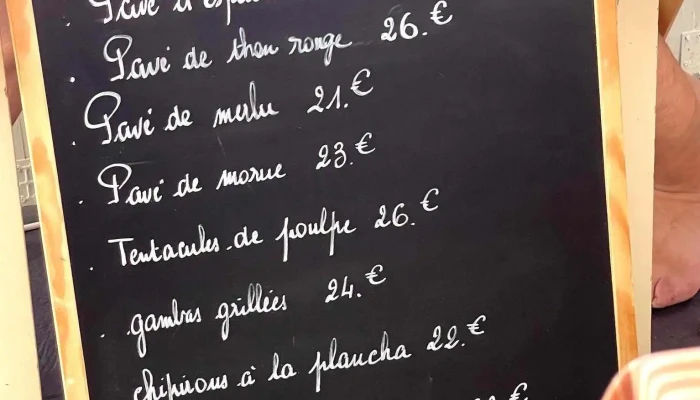 . Pavé d'espa
. Pavé de thon rouge 26.€
. Pavé de merlu 21.€
. Pavé de morue 23.€
. Tentacules de poulpe 26.€
. gambas grillées 24.€
chipirons à la plancha 22.€
€